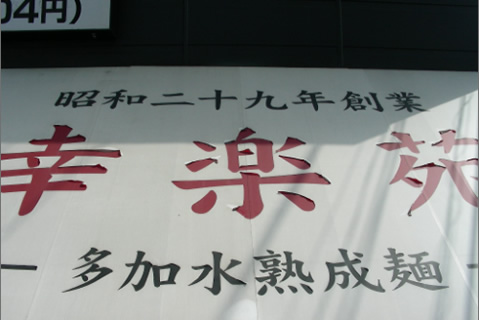 04円)
昭和二十九年創業
幸楽苑
多加水熟成麺